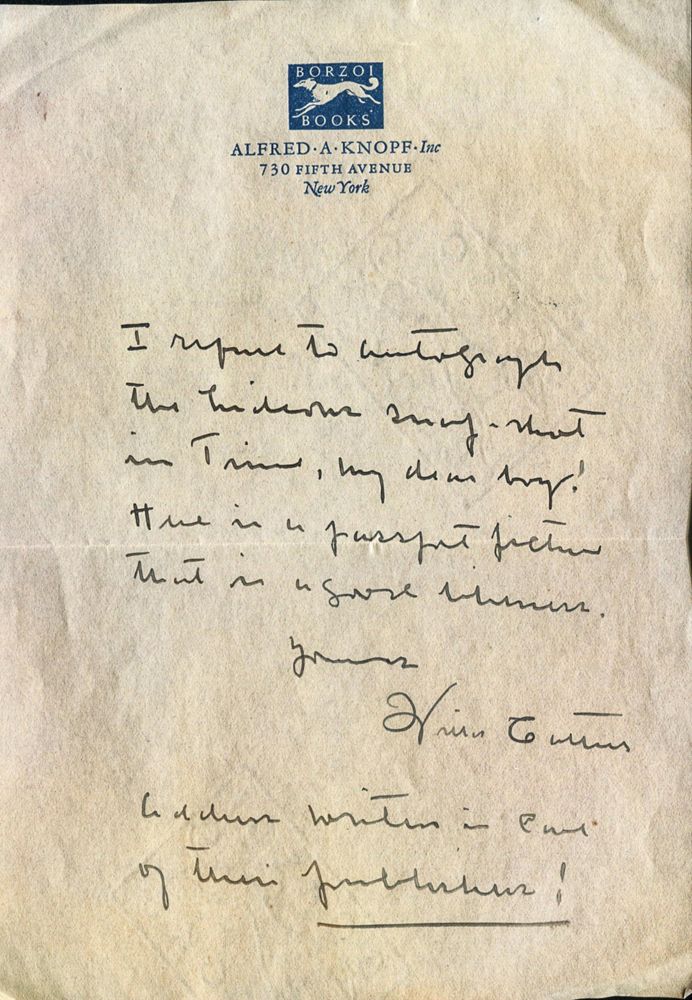 BORZOI
BOOKS
ALFRED·A·KNOPF·Inc
730 FIFTH AVENUE
New York
I refuse to autograph
the hideous snap-shot
in Time, my dear boy!
Here is a passport picture
that is a good likeness.
Yours
Willa Cather
Address writers in care
of their publishers!